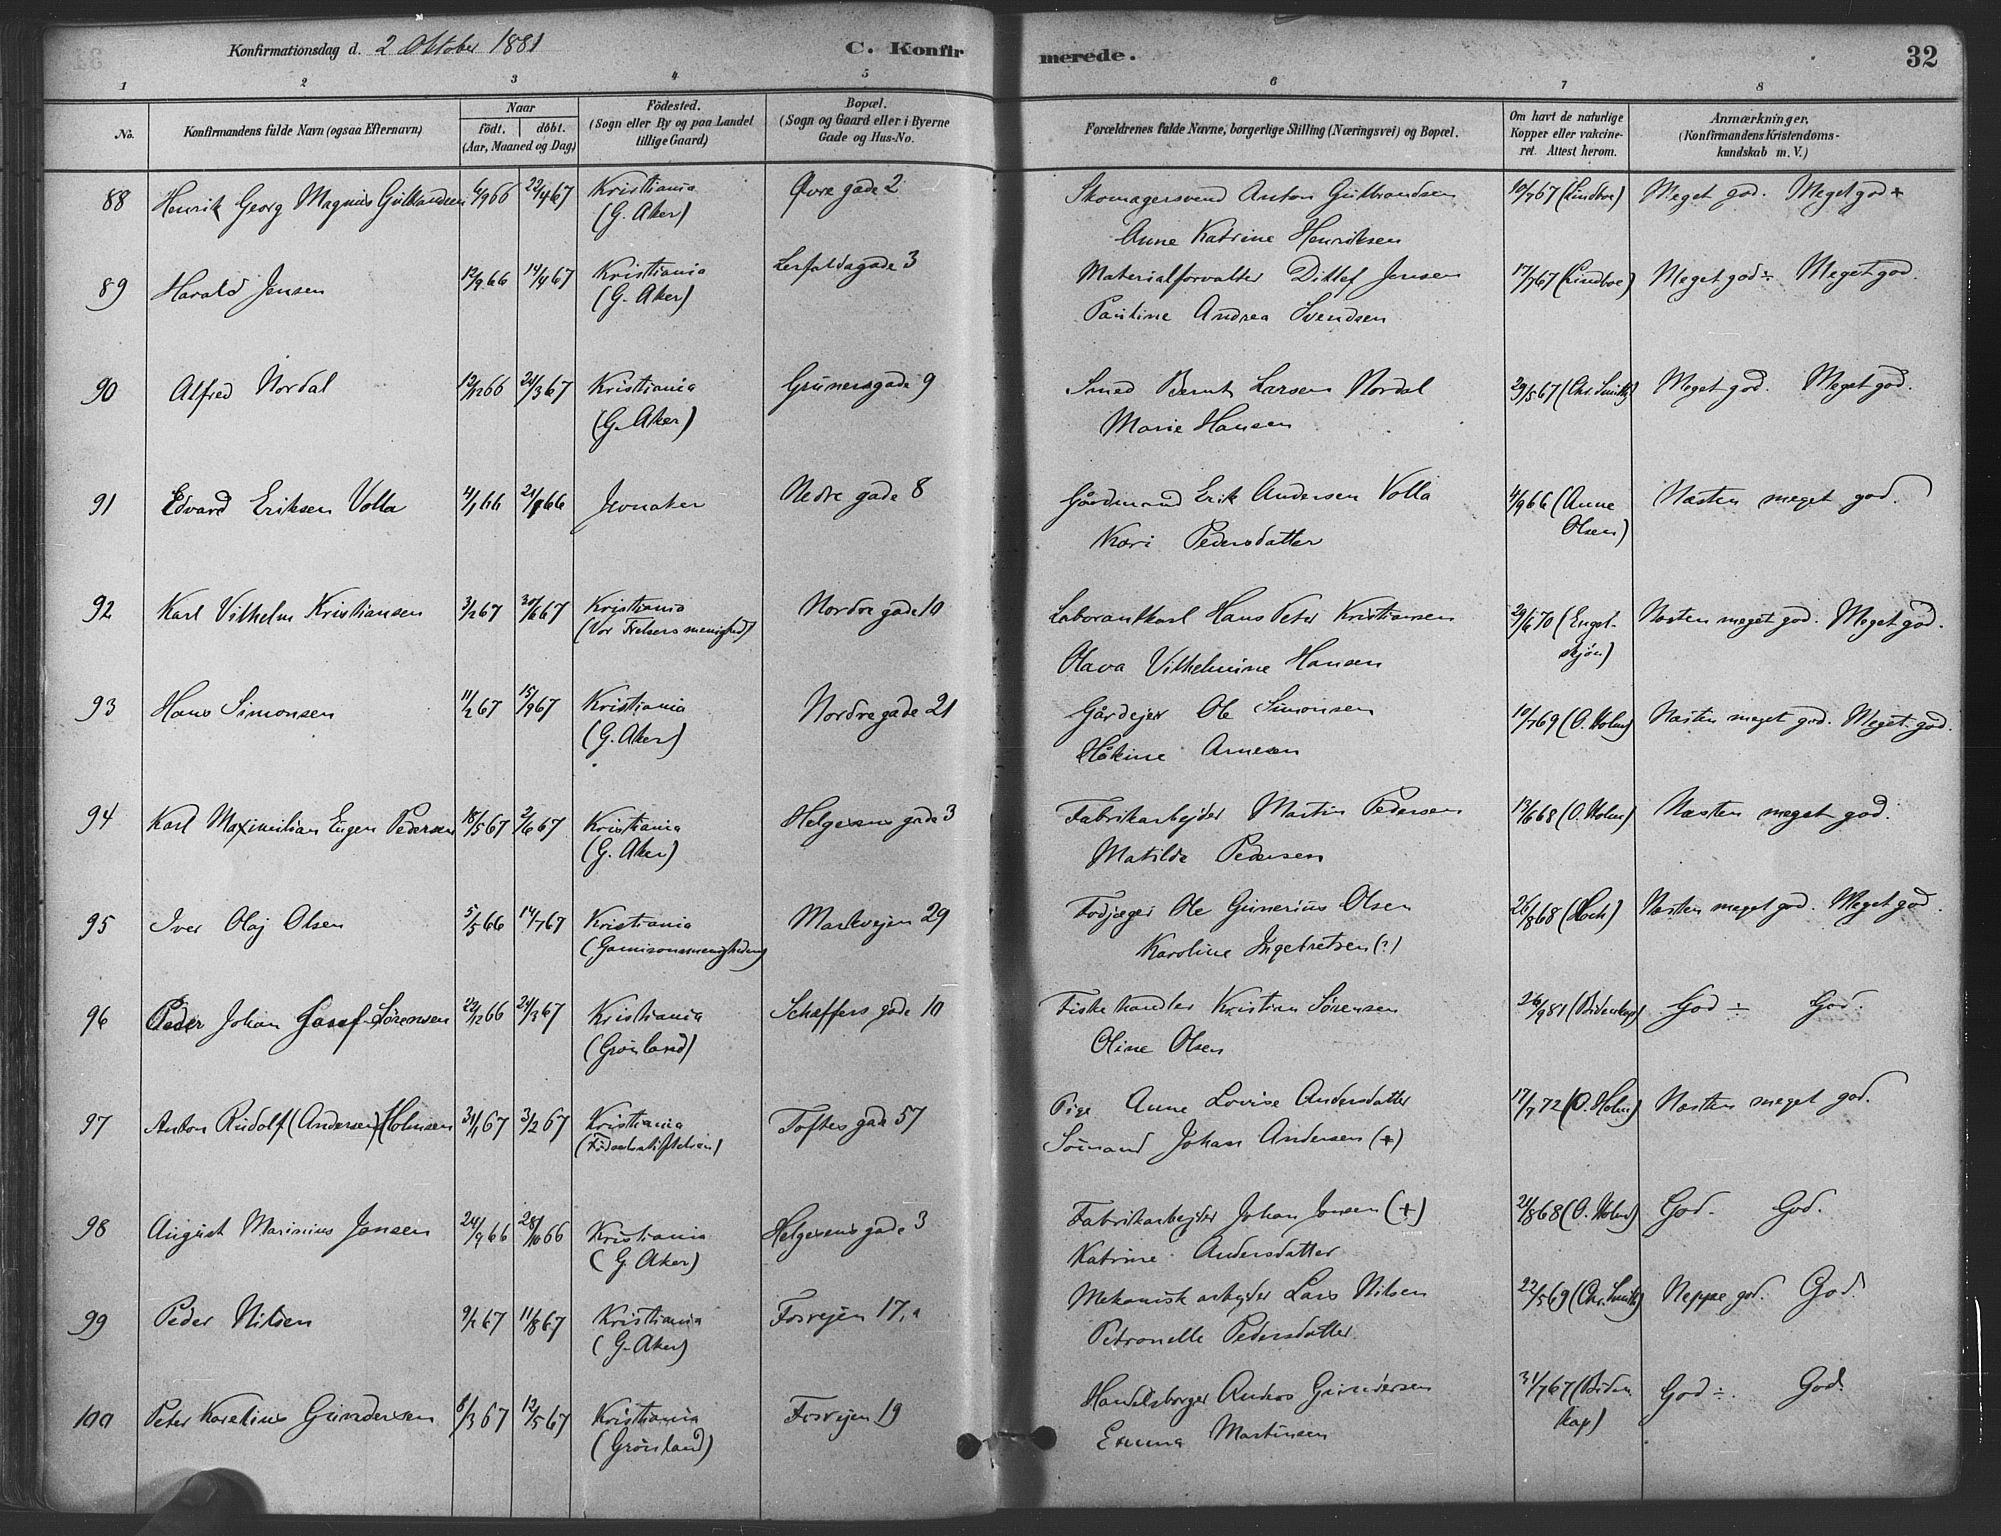 Konfirmationsdag d. 2 Oktober 1881 C. Konfir merede. 32
1 2 3 4 5 6 7 8
No. Konfirmandens fulde Navn (ogsaa Efternavn) Naar födt. döbt. (Aar, Maaned og Dag) Födested. (Sogn eller By og paa Landet tillige Gaard) Bopæl. (Sogn og Gaard eller i Byerne Gade og Hus-No. Forældrenes fulde Navne, borgerlige Stilling (Næringsvei) og Bopæl. Om havt de naturlige Kopper eller vakcineret. Attest herom. Anmærkninger, (Konfirmandens Kristendomskundskab m. V.)
88 Henrik Georg Magnus Gulbrandsen 6/9 66 22/4 67 Kristiania Øvre gade 2 Skomagersvend Anton Gulbrandsen 10/7 67 (Lindboe) Meget god. Meget god +
(G. Aker) Anne Katrine Henriksen
89 Harald Jensen 12/9 66 14/4 67 Kristiania Lerfaldsgade 3 Materialforvalter Ditlef Jensen 17/7 67 (Lindboe) Meget god ÷ Meget god.
(G. Aker) Pauline Andrea Svendsen
90 Alfred Nordal 12/12 66 24/3 67 Kristiania Grünersgade 9 Smed Bernt Larsen Nordal 29/5 67 (Chr. Smith) Meget god. Meget god.
(G. Aker) Marie Hansen
91 Edvard Eriksen Volla 4/1 66 21/1 66 Jevnaker Nedre gade 8 Gårdmand Erik Andersen Volla 4/9 66 (Anne Olsen) Næsten meget god.
Kari Pedersdatter
92 Karl Vilhelm Kristiansen 3/2 67 30/6 67 Kristiania Nordre gade 10 Laborantkarl Hans Peter Kristiansen 29/6 70 (Engelskjøn) Næsten meget god. Meget god.
(Vor Frelsers menighed) Olava Vilhelmine Hansen
93 Hans Simonsen 11/2 67 15/9 67 Kristiania Nordre gade 21 Gårdejer Ole Simonsen 10/7 69 (O. Holm) Næsten meget god. Meget god.
(G. Aker) Håkine Arnesen
94 Karl Maximilian Eugen Pedersen 18/5 67 2/6 67 Kristiania Helgesens gade 3 Fabrikarbejder Martin Pedersen 13/6 68 (O. Holm) Næsten meget god.
(G. Aker) Matilde Pedersen
95 Iver Olaj Olsen 5/5 66 14/7 67 Kristiania Markvejen 29 Fodjæger Ole Gunerius Olsen 26/8 68 (Hoch) Næsten meget god. Meget god.
(Garnisonsmenigheden) Karoline Ingebretsen (?)
96 Peder Johan Josef Sørensen 22/12 66 24/3 67 Kristiania Schæffers gade 10 Fiskehandler Kristian Sørensen 26/9 81 (Bidenkap) God ÷ God.
(Grønland) Oline Olsen
97 Anton Rudolf (Andersen) Holmsen 31/1 67 3/2 67 Kristiania Toftes gade 57 Pige Anne Lovise Andersdatter 17/7 72 (O. Holm) Næsten meget god.
(Fødselsstiftelsen) Sømand Johan Andersen (+)
98 August Marinius Jansen 24/9 66 28/10 66 Kristiania Helgesens gade 3 Fabrikarbejder Johan Jonsen (+) 21/8 68 (O. Holm) God. God.
(G. Aker) Katrine Andersdatter
99 Peder Nilsen 9/2 67 11/8 67 Kristiania Fosvejen 17, a Mekanisk arbejder Lars Nilsen 22/5 69 (Chr. Smith) Neppe god. God.
(G. Aker) Petronelle Pedersdatter
100 Peter Karelius Gundersen 8/3 67 12/5 67 Kristiania Fosvejen 19 Handelsborger Anders Gundersen 31/7 67 (Bidenkap) God ÷. God.
(Grønland) Emma Martinsen